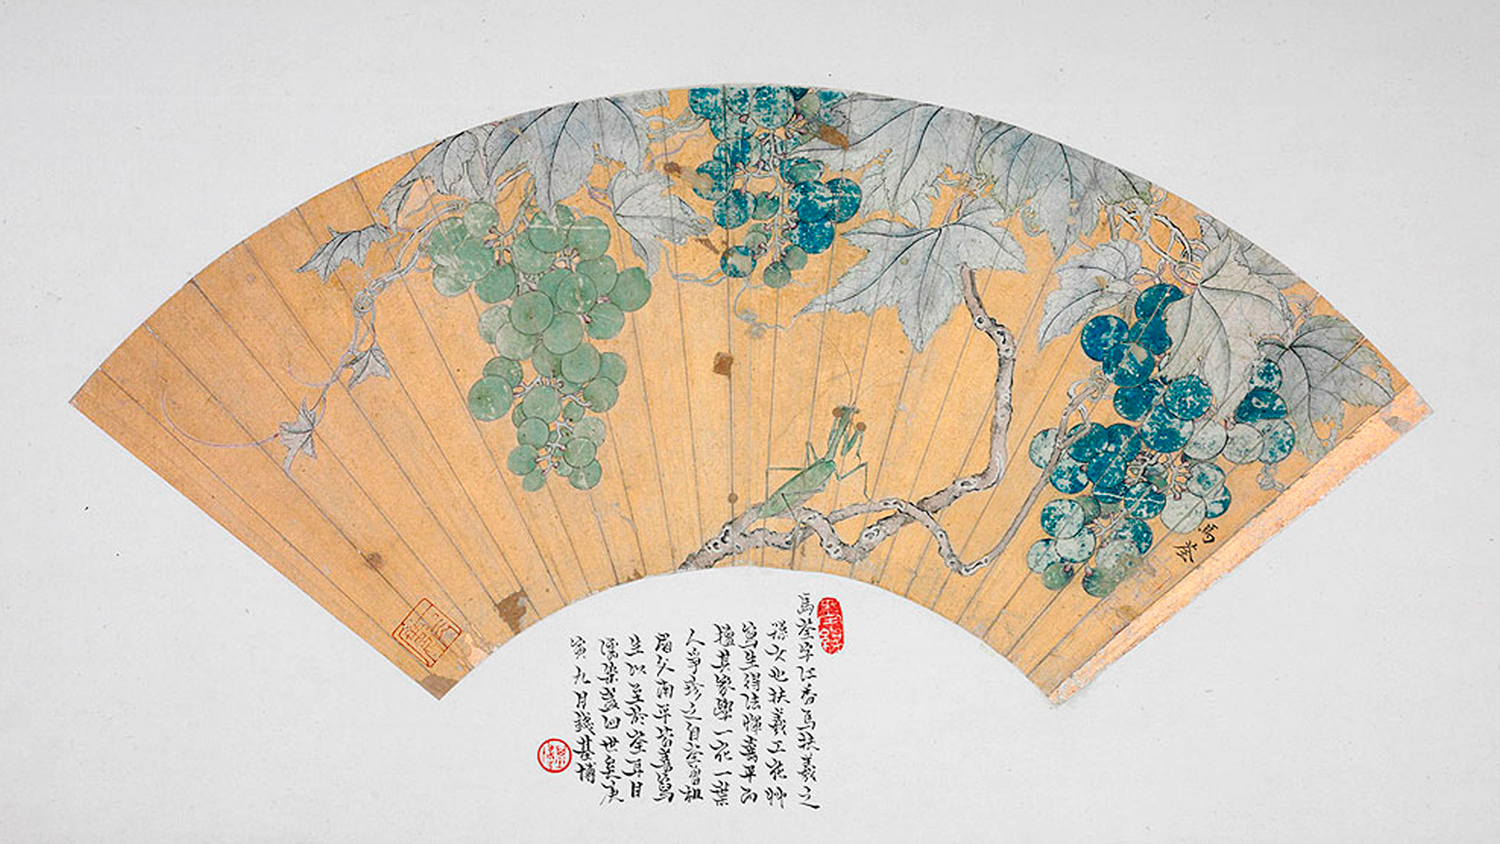 馬荃
馬荃字江香馬扶羲之
孫女也扶羲工花艸
寫生得法惲壽平而
擅其家學一花一葉
人爭珍之自荃曾祖
眉父南平皆善寫
生以至於荃耳目
濡染葢四世矣庚
寅九月錢基博